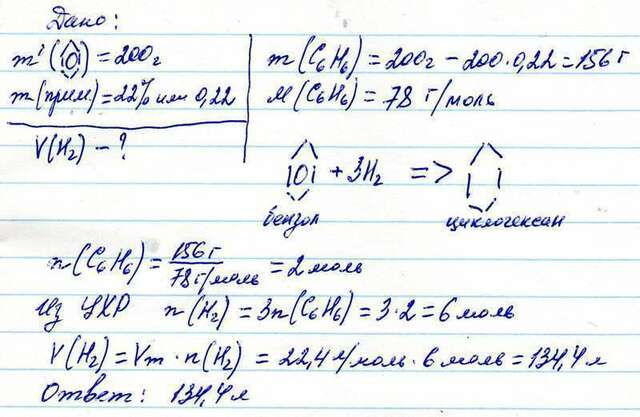 Дано:
m'( ) = 200г
m(прим) = 22% или 0,22
V(H₂) - ?
m(C₆H₆) = 200г - 200·0,22 = 156г
M(C₆H₆) = 78 г/моль
+ 3H₂ =>
бензол циклогексан
n(C₆H₆) = 156г / 78г/моль = 2 моль
Из УХР n(H₂) = 3n(C₆H₆) = 3·2 = 6 моль
V(H₂) = Vm · n(H₂) = 22,4 л/моль · 6 моль = 134,4 л
Ответ: 134,4 л